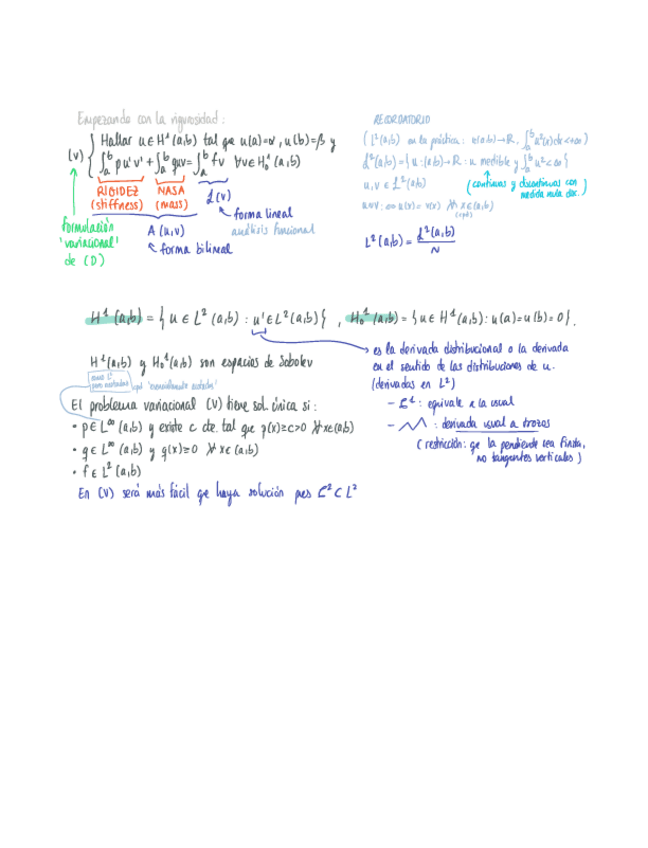 Empezando con la rigurosidad:
(V) { Hallar u ∈ H¹(a,b) tal que u(a)=α, u(b)=β y
∫ₐᵇ pu'v' + ∫ₐᵇ quv = ∫ₐᵇ fv ∀v ∈ H₀¹(a,b)
RIGIDEZ (stiffness)
MASA (mass)
L(v)
forma lineal
análisis funcional
A(u,v)
forma bilineal
formulación
'variacional'
de (D)
RECORDATORIO
(L²(a,b) en la práctica: u:(a,b)→R, ∫ₐᵇ u²(x)dx<+∞)
ℒ²(a,b) = {u:(a,b)→R : u medible y ∫ₐᵇ u²<∞}
u,v ∈ ℒ²(a,b)
(continuas y discontinuas con
medida nula disc.)
u~v ⇔ u(x)=v(x) ∀ x∈(a,b)
(cpd)
L²(a,b) = ℒ²(a,b) / ~
H¹(a,b) = {u ∈ L²(a,b) : u' ∈ L²(a,b)}, H₀¹(a,b) = {u ∈ H¹(a,b) : u(a)=u(b)=0}.
→ es la derivada distribucional o la derivada
en el sentido de las distribuciones de u.
(derivadas en L²)
- C¹ : equivale a la usual
- : derivada usual a trozos
(restricción: qe la pendiente sea finita,
no tangentes verticales)
H¹(a,b) y H₀¹(a,b) son espacios de Sobolev
como L²
pero acotadas cpd 'esencialmente acotadas'
El problema variacional (V) tiene sol. única si:
• p ∈ L^∞(a,b) y existe c cte. tal que p(x)≥c>0 ∀ x∈(a,b)
• q ∈ L^∞(a,b) y q(x)≥0 ∀ x∈(a,b)
• f ∈ L²(a,b)
En (V) será más fácil qe haya solución pues C² ⊂ L²